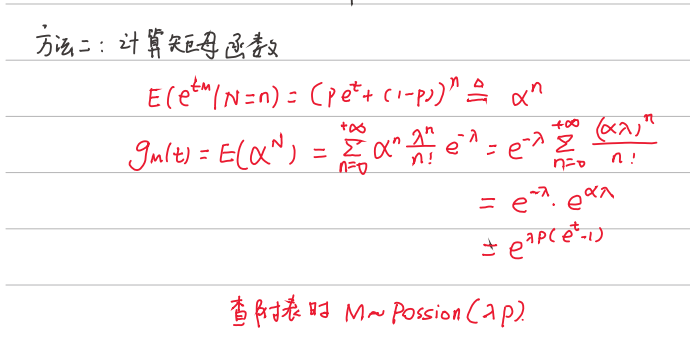 方法二：计算矩母函数
E(e^{tM}|N=n) = (pe^t+(1-p))^n ≜ α^n
g_M(t) = E(α^N) = \sum_{n=0}^{+∞} α^n \frac{λ^n}{n!} e^{-λ} = e^{-λ} \sum_{n=0}^{+∞} \frac{(αλ)^n}{n!}
= e^{-λ} · e^{αλ}
= e^{λp(e^t-1)}
查附表时 M~Possion(λp).